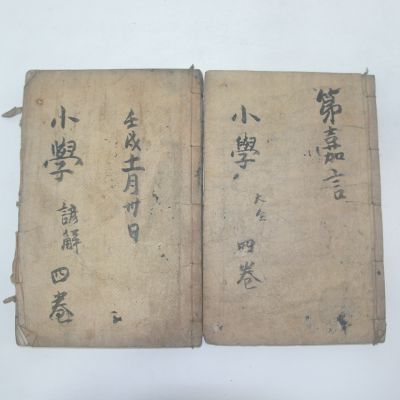 壬戌十一月卅日
小學 諺解 四卷
第嘉言
小學 大全 四卷